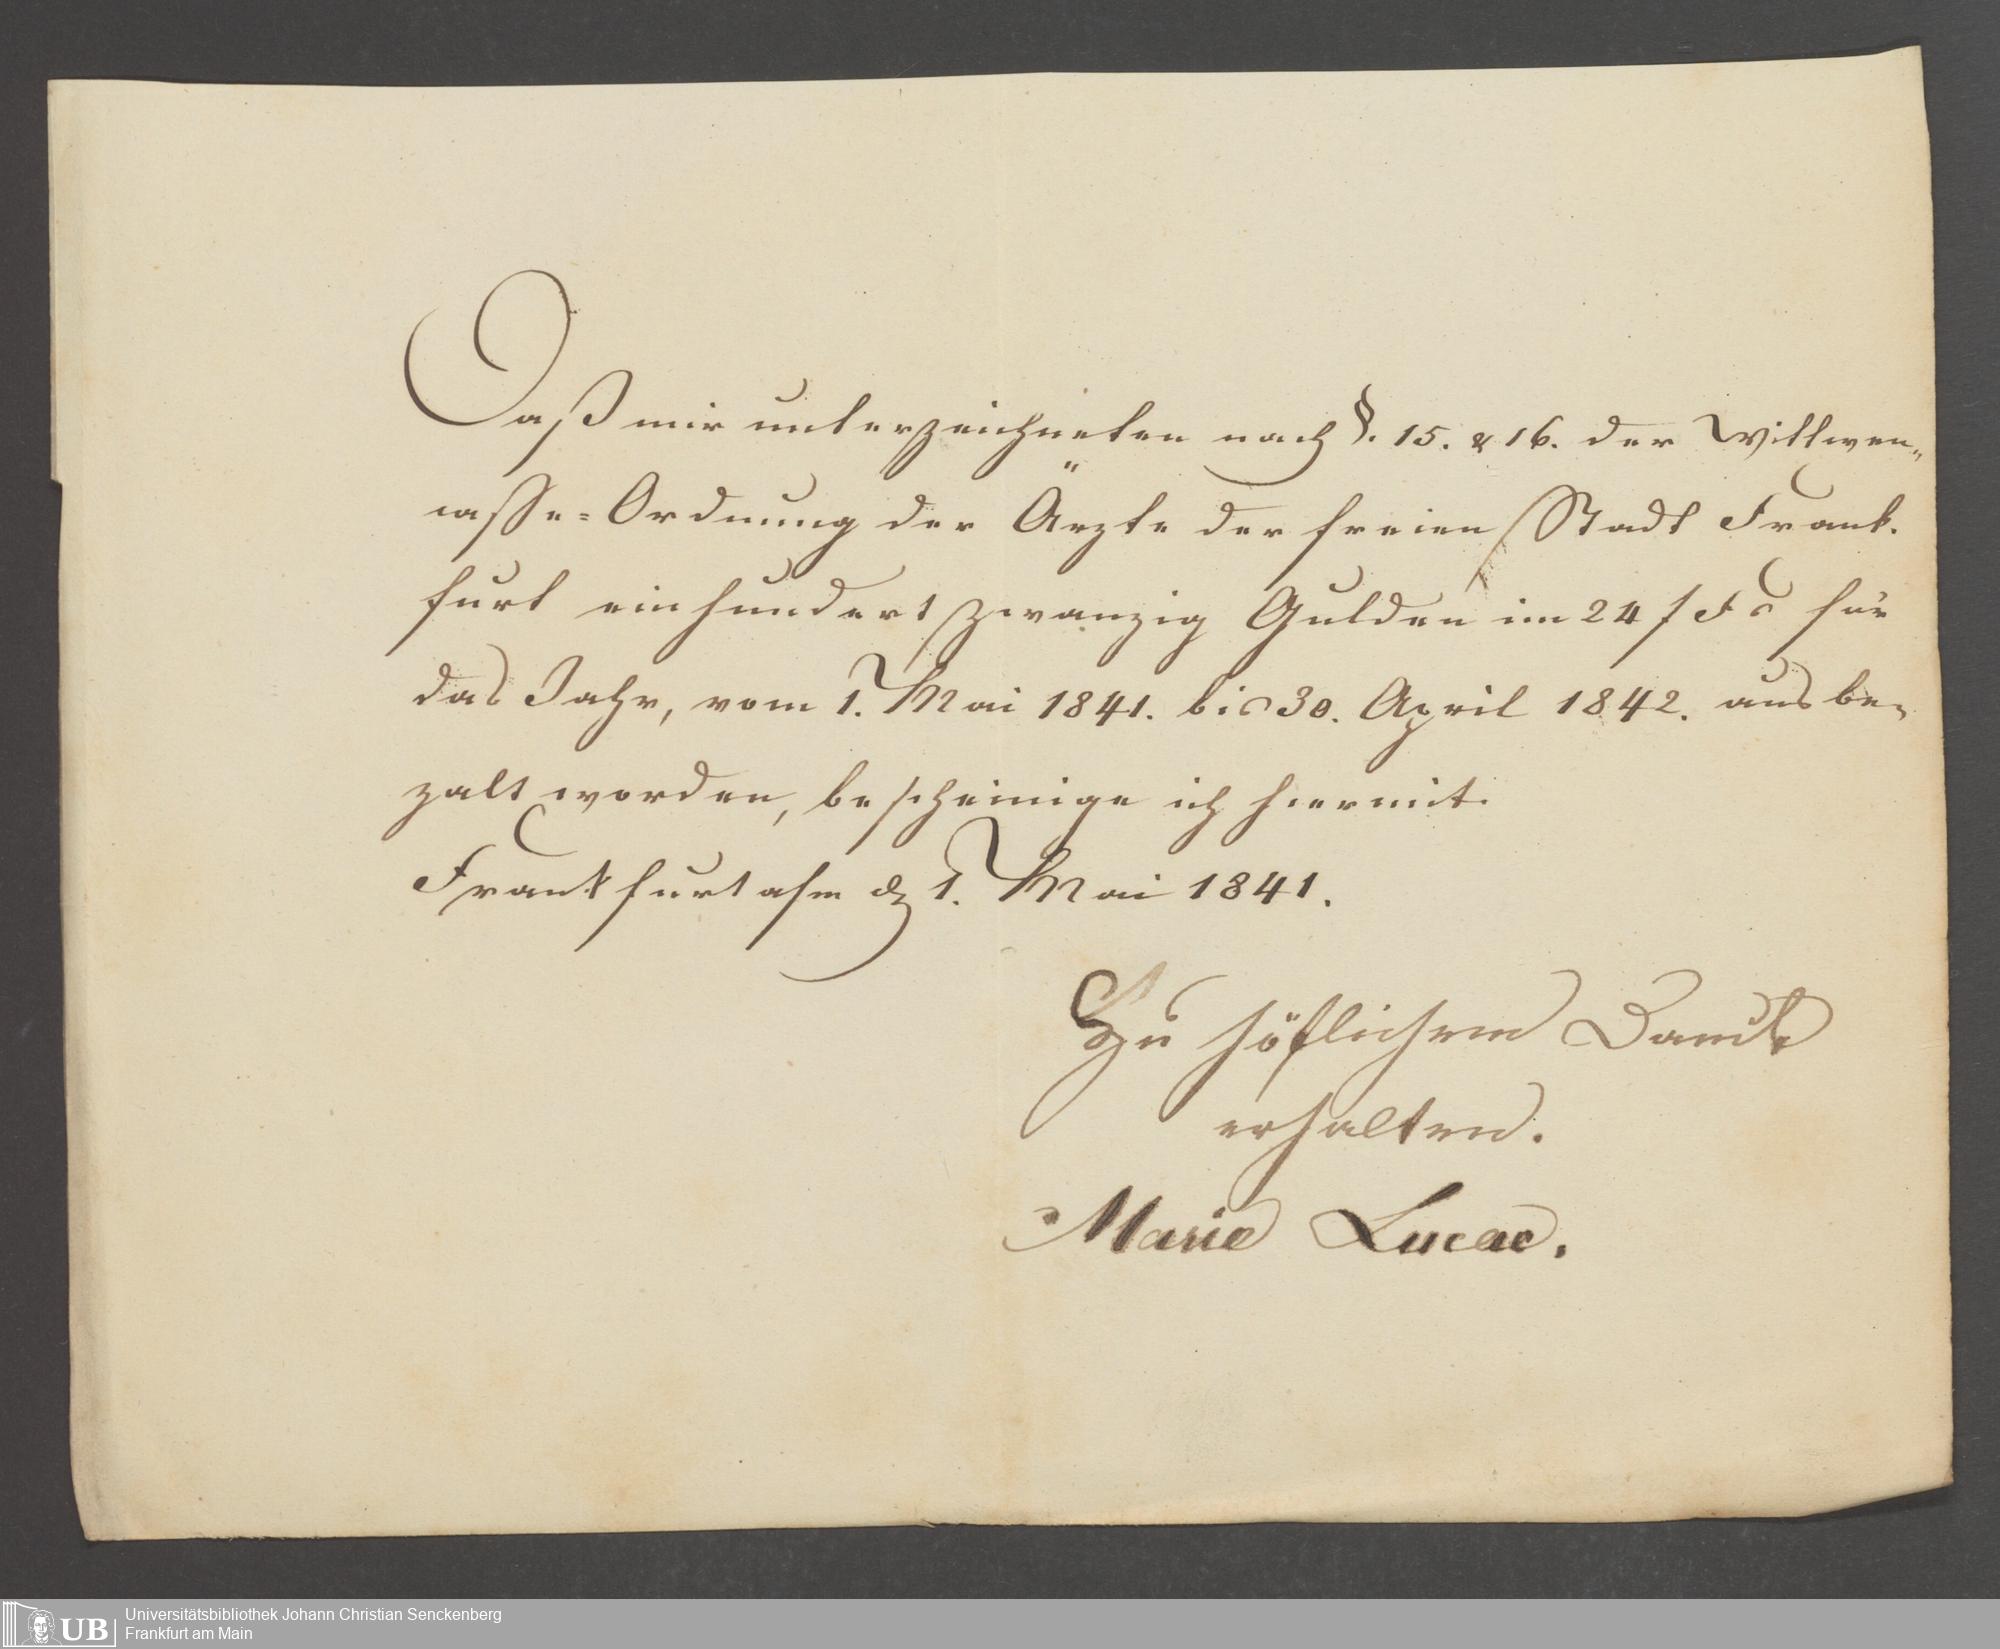 Daß mir unterzeichneten nach §. 15. & 16. der Wittwen„
casse=Ordnung der Ärzte der freien Stadt Frank.
furt einhundert zwanzig Gulden im 24 f Fs für
das Jahr, vom 1. Mai 1841. bis 30. April 1842. ausbe„
zalt worden, bescheinige ich hiermit.
Frankfurt a/m d 1. Mai 1841.
Zu höflichem Danck
erhalten.
Marie Lucae.
UB
Universitätsbibliothek Johann Christian Senckenberg
Frankfurt am Main